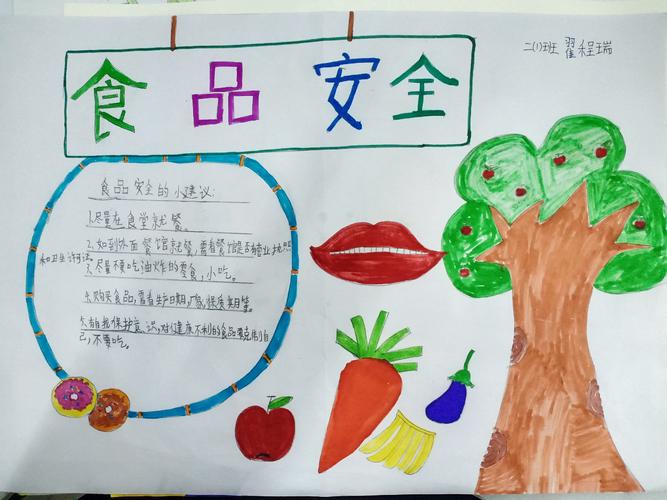 二(1)班 翟程瑞
食品安全
食品安全的小建议:
1.尽量在食堂就餐。
2.如到外面餐馆就餐,需看餐馆是否有营业执照
和卫生许可证。
3.尽量不要吃油炸的零食,小吃。
4.购买食品,需看生产日期,厂家,保质期等。
5.有自我保护意识,对健康不利的食品要克制自
己,不要吃。